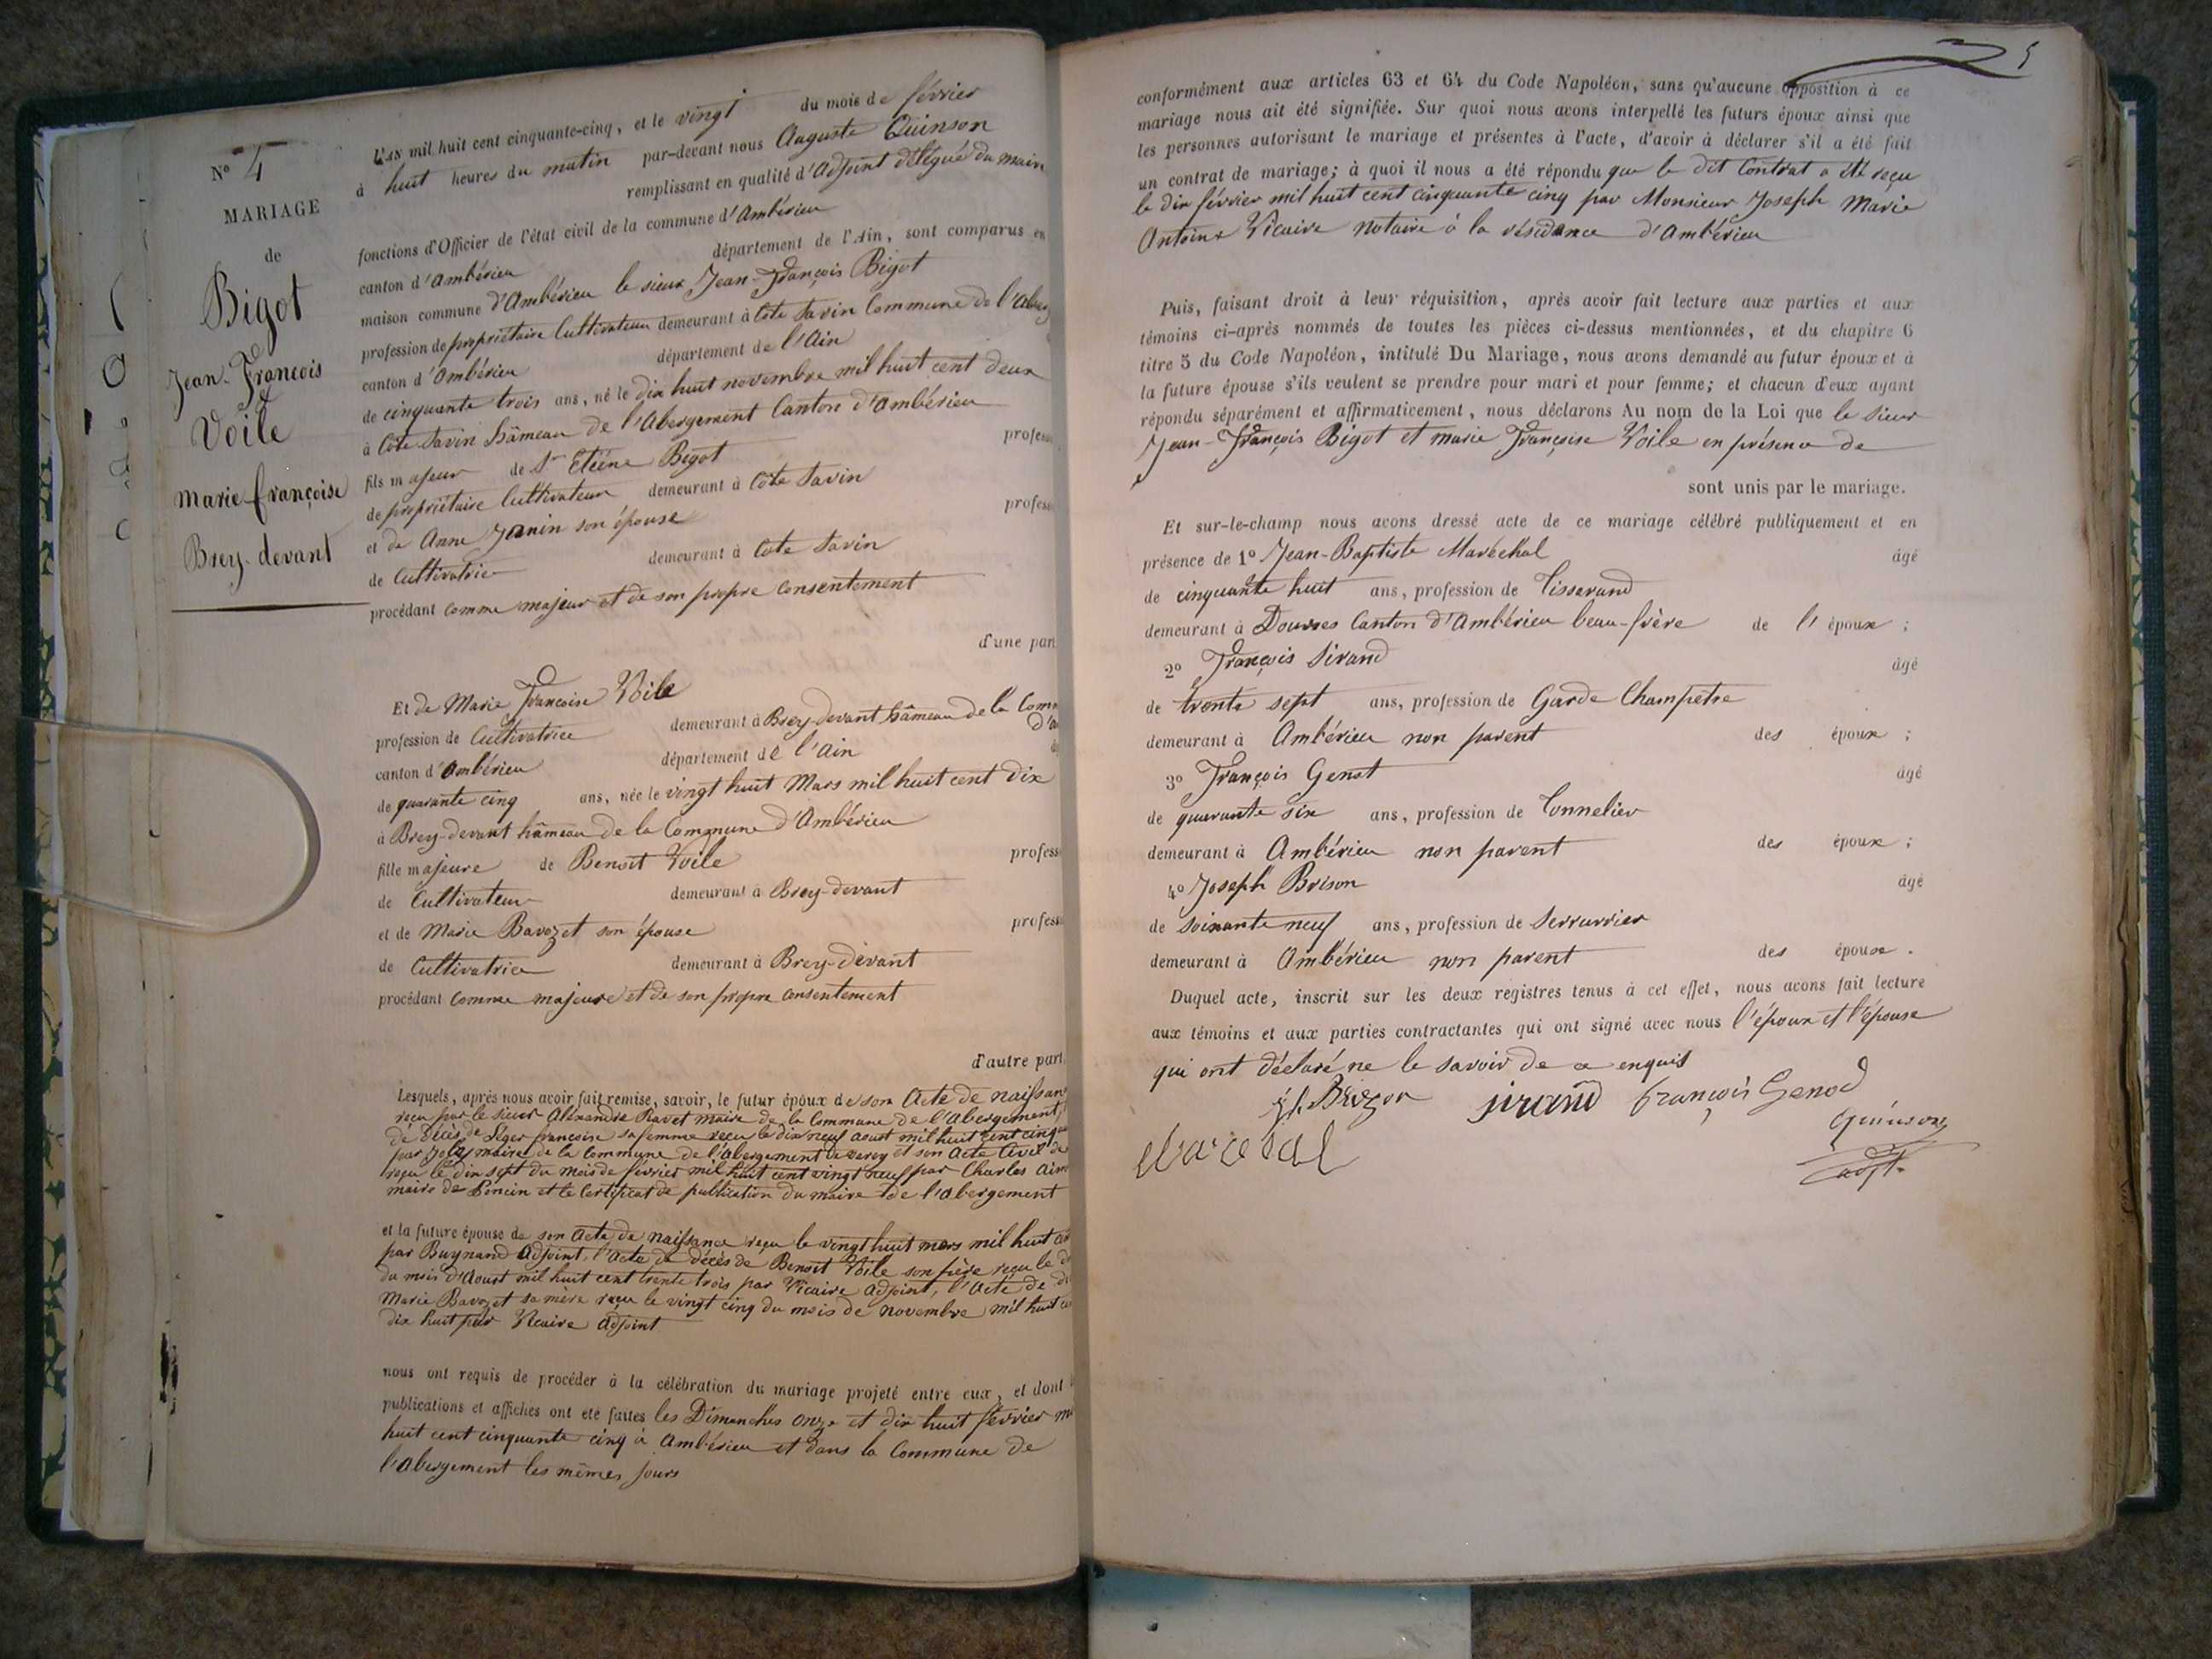 N° 4
MARIAGE
de
Bigot
Jean-François
&
Voile
Marie françoise
Brey-devant
L'AN mil huit cent cinquante-cinq, et le vingt du mois de février
à huit heures du matin par-devant nous Auguste Quinson
remplissant en qualité d'Adjoint délégué du maire
fonctions d'Officier de l'état civil de la commune d'Ambérieu
canton d'Ambérieu département de l'Ain, sont comparus en
maison commune d'Ambérieu le sieur Jean-François Bigot
profession de propriétaire Cultivateur demeurant à Côte Savin Commune de l'Aberg
canton d'Ambérieu département de l'Ain
de cinquante trois ans, né le dix huit novembre mil huit cent deux
à Côte Savin hâmeau de l'Abergement Canton d'Ambérieu
fils majeur de Sr Etiéne Bigot profess
de propriétaire Cultivateur demeurant à Côte Savin
et de Anne Janin son épouse profess
de Cultivatrice demeurant à Côte Savin
procédant comme majeur et de son propre consentement
d'une par
Et de Marie Françoise Voile
profession de Cultivatrice demeurant à Brey-devant hâmeau de la Comm
d'a
canton d'Ambérieu département de l'Ain
de quarante cinq ans, née le vingt huit Mars mil huit cent dix
à Brey-devant hâmeau de la Commune d'Ambérieu
fille majeure de Benoit Voile profess
de Cultivateur demeurant à Brey-devant
et de Marie Bavozet son épouse profess
de Cultivatrice demeurant à Brey-devant
procédant comme majeure et de son propre consentement
d'autre part.
Lesquels, après nous avoir fait remise, savoir, le futur époux de son Acte de naissan
reçu par le sieur Alexandre Ravet maire de la Commune de l'abergement,
de décès de Léger françoise sa femme reçu le dix neuf aoust mil huit cent cinq
par Joly maire de la Commune de l'abergement de varey et son Acte Civil de
reçu le dix sept du mois de février mil huit cent vingt neuf par Charles Aim
maire de Poncin et le Certificat de publication du maire de l'abergement
et la future épouse de son Acte de naissance reçu le vingt huit mars mil huit ce
par Buynand adjoint, l'acte de décès de Benoit Voile son père reçu le d
du mois d'Aoust mil huit cent trente trois par Vicaire adjoint, l'Acte de d
Marie Bavozet sa mère reçu le vingt cinq du mois de novembre mil huit ce
dix huit par Vicaire adjoint
nous ont requis de procéder à la célébration du mariage projeté entre eux, et dont
publications et affiches ont été faites les Dimanches onze et dix huit février m
huit cent cinquante cinq à Ambérieu et dans la Commune de
l'abergement les mêmes jours
5
conformément aux articles 63 et 64 du Code Napoléon, sans qu'aucune opposition à ce
mariage nous ait été signifiée. Sur quoi nous avons interpellé les futurs époux ainsi que
les personnes autorisant le mariage et présentes à l'acte, d'avoir à déclarer s'il a été fait
un contrat de mariage; à quoi il nous a été répondu que le dit Contrat a été reçu
le dix février mil huit cent cinquante cinq par Monsieur Joseph Marie
Antoine Vicaire notaire à la résidence d'Ambérieu
Puis, faisant droit à leur réquisition, après avoir fait lecture aux parties et aux
témoins ci-après nommés de toutes les pièces ci-dessus mentionnées, et du chapitre 6
titre 5 du Code Napoléon, intitulé Du Mariage, nous avons demandé au futur époux et à
la future épouse s'ils veulent se prendre pour mari et pour femme; et chacun d'eux ayant
répondu séparément et affirmativement, nous déclarons Au nom de la Loi que le sieur
Jean-François Bigot et marie Françoise Voile en présence de
sont unis par le mariage.
Et sur-le-champ nous avons dressé acte de ce mariage célébré publiquement et en
présence de 1° Jean-Baptiste Maréchal âgé
de cinquante huit ans, profession de Tisserand
demeurant à Douvres Canton d'Ambérieu beau-frère de l'époux;
2° François Sirand âgé
de trente sept ans, profession de Garde Champetre
demeurant à Ambérieu non parent des époux;
3° François Genot âgé
de quarante six ans, profession de Tonnelier
demeurant à Ambérieu non parent des époux;
4° Joseph Brison âgé
de soixante neuf ans, profession de Serrurrier
demeurant à Ambérieu non parent des époux.
Duquel acte, inscrit sur les deux registres tenus à cet effet, nous avons fait lecture
aux témoins et aux parties contractantes qui ont signé avec nous l'époux et l'épouse
qui ont déclaré ne le savoir de ce enquis
Brizon sirand françois Genod
Quinson
Marechal
adjt.